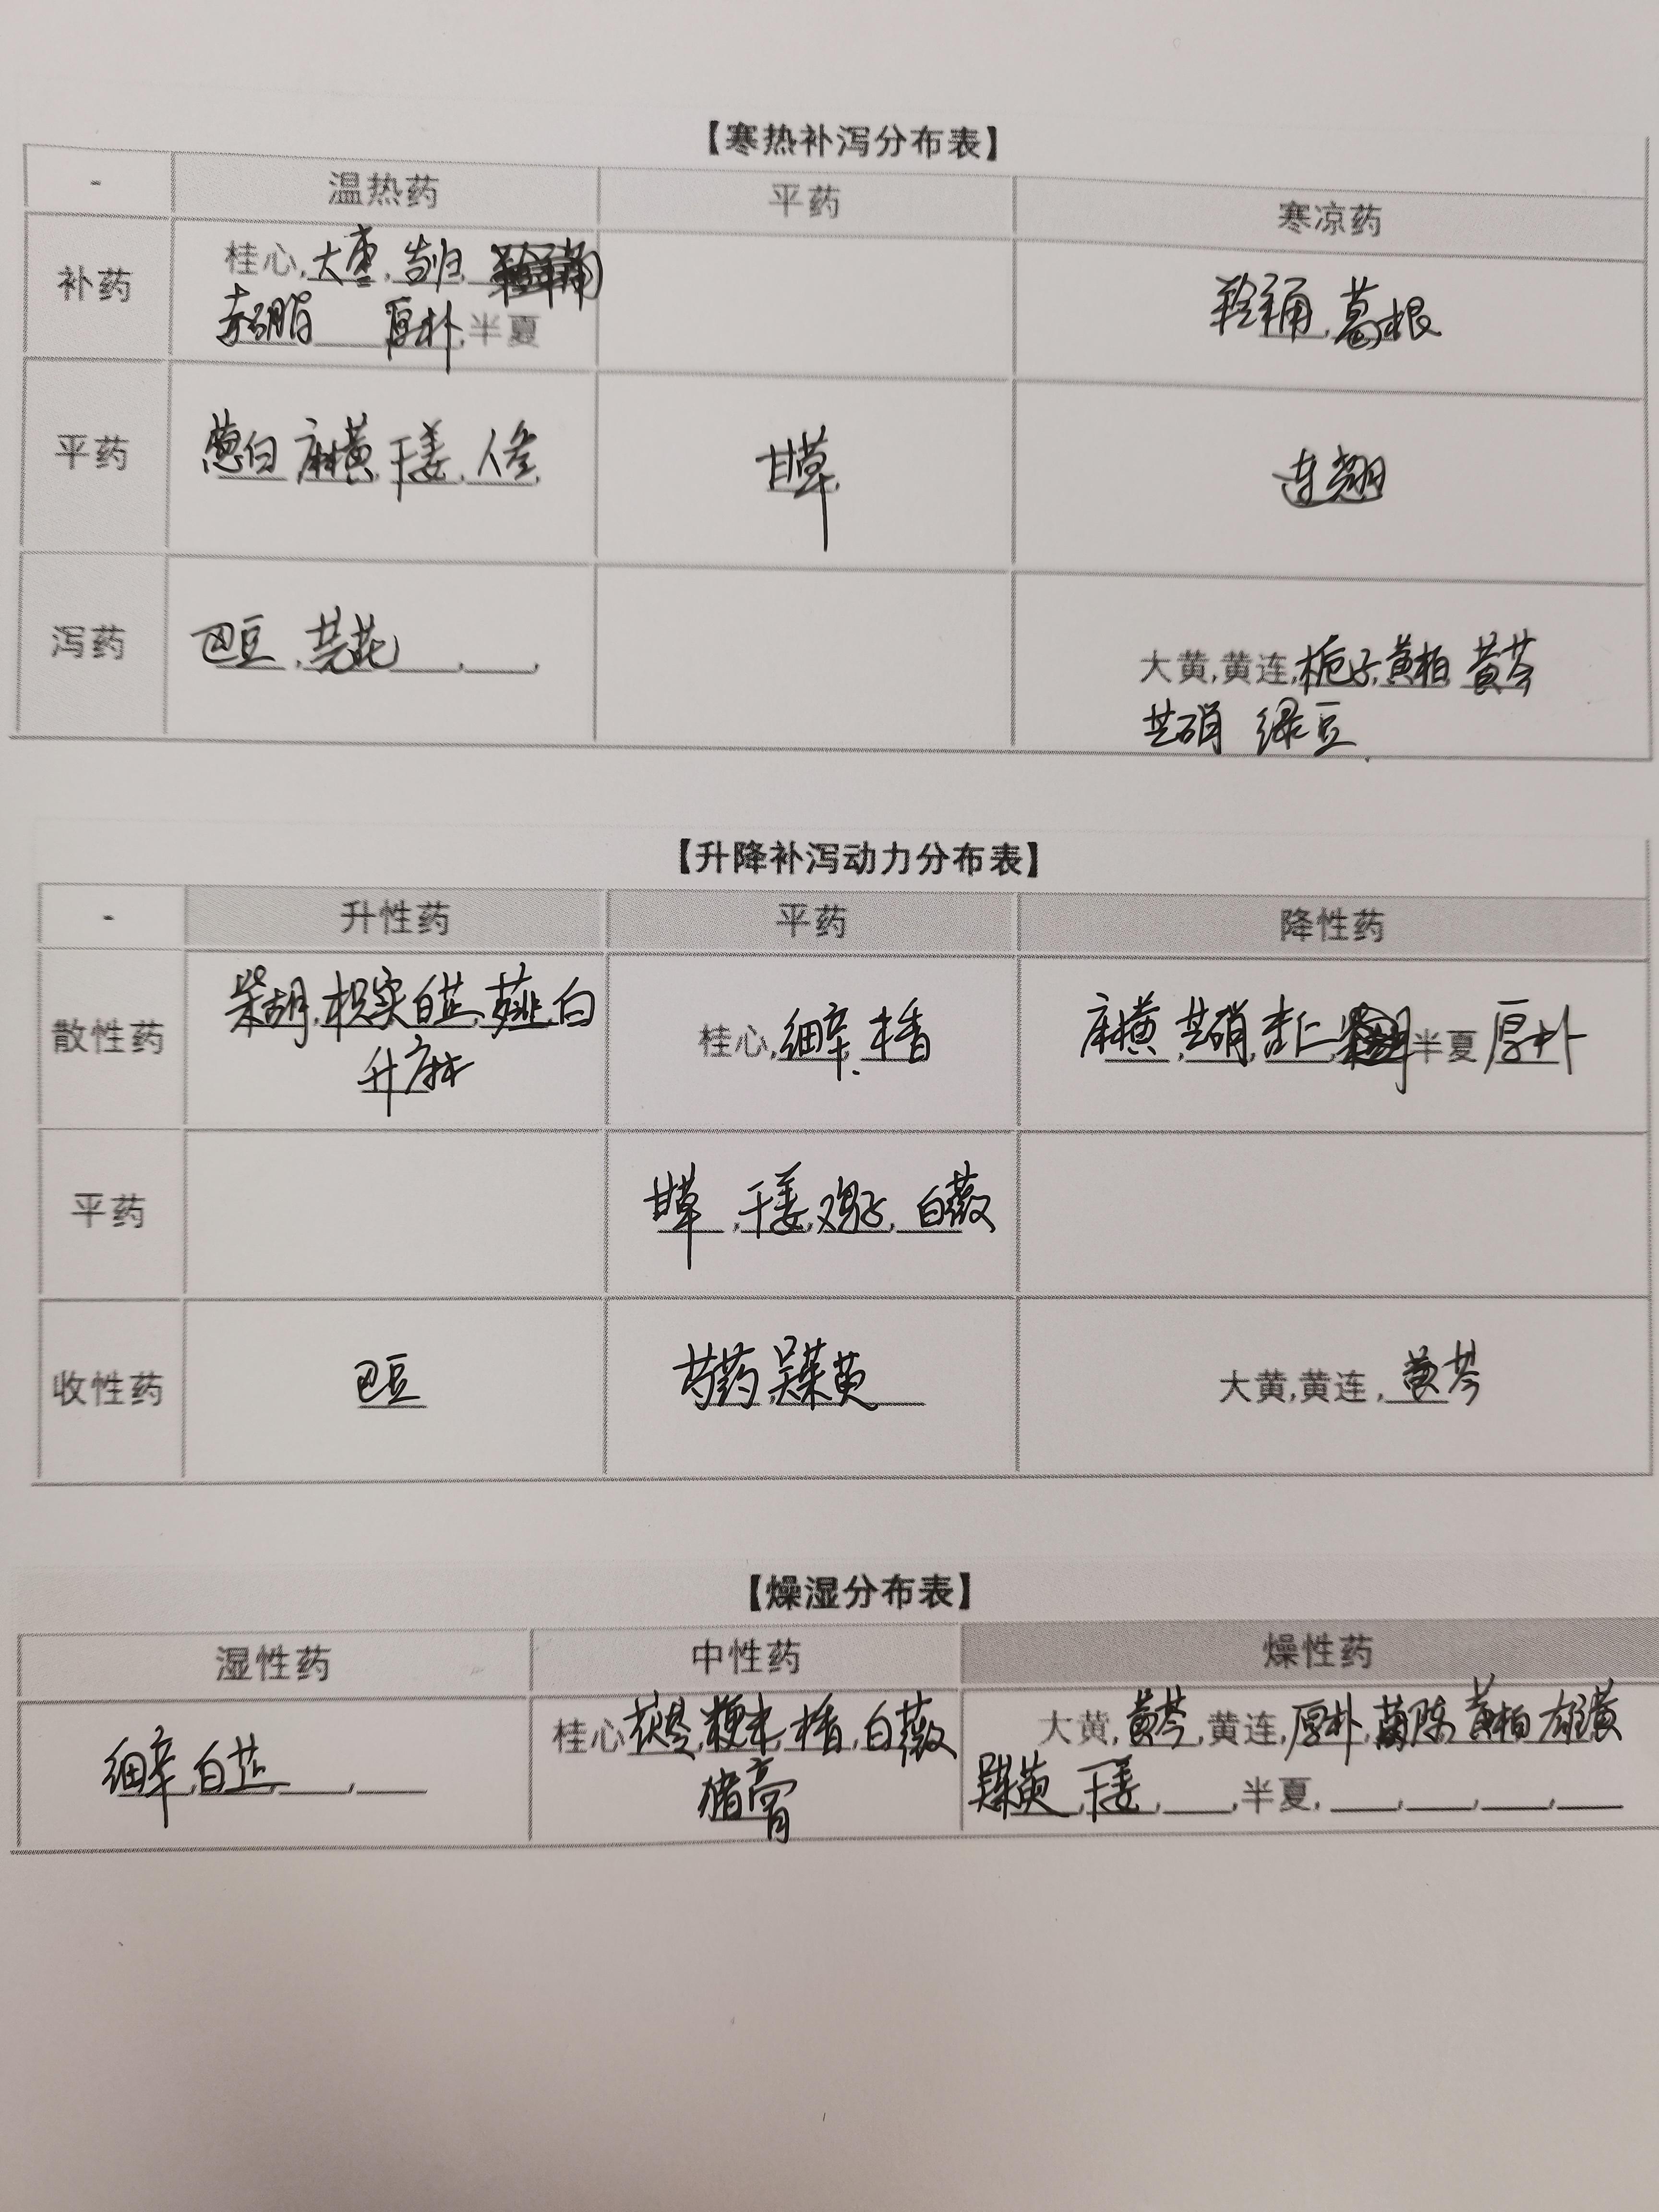 【寒热补泻分布表】
- 温热药 平药 寒凉药
补药 桂心,大枣,当归,
赤硝脂 厚朴,半夏
葛根
平药 葱白 麻黄,干姜,人参, 甘草, 连翘
泻药 巴豆,芫花____,____, 大黄,黄连,栀子,黄柏 黄芩
芒硝 绿豆
【升降补泻动力分布表】
- 升性药 平药 降性药
散性药 柴胡,枳实,白芷, 葱白 桂心,细辛, 木香 麻黄,芒硝,杏仁,半夏 厚朴
升麻
平药 甘草,干姜,鸡子,白薇
收性药 巴豆 芍药,吴茱萸 大黄,黄连,黄芩
【燥湿分布表】
湿性药 中性药 燥性药
细辛,白芷____,____ 桂心 茯苓,粳米,木香,白薇 大黄,黄芩,黄连,厚朴,茵陈,黄柏 雄黄
猪膏 吴茱萸,干姜,____,半夏,____,____,____,____